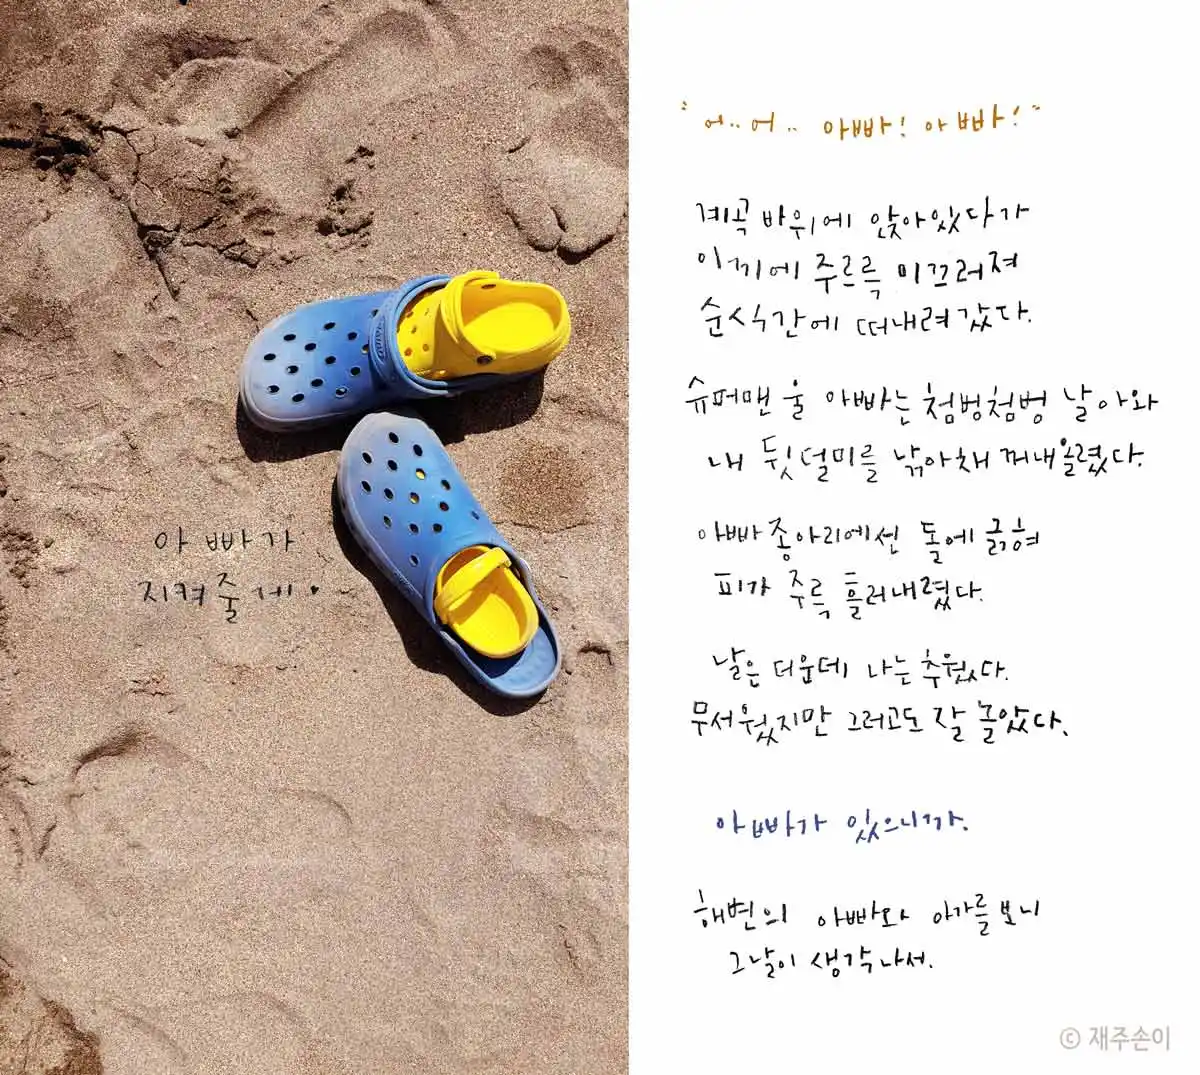 아빠가
지켜줄게.
"어..어.. 아빠! 아빠!"
계곡 바위에 앉아있다가
이끼에 주르륵 미끄러져
순식간에 떠내려갔다.
슈퍼맨 울 아빠는 첨벙첨벙 날아와
내 뒷덜미를 낚아채 꺼내올렸다.
아빠 종아리에선 돌에 긁혀
피가 주륵 흘러내렸다.
날은 더운데 나는 추웠다.
무서웠지만 그러고도 잘 놀았다.
아빠가 있으니까.
해변의 아빠와 아가를 보니
그날이 생각나서.
© 재주손이